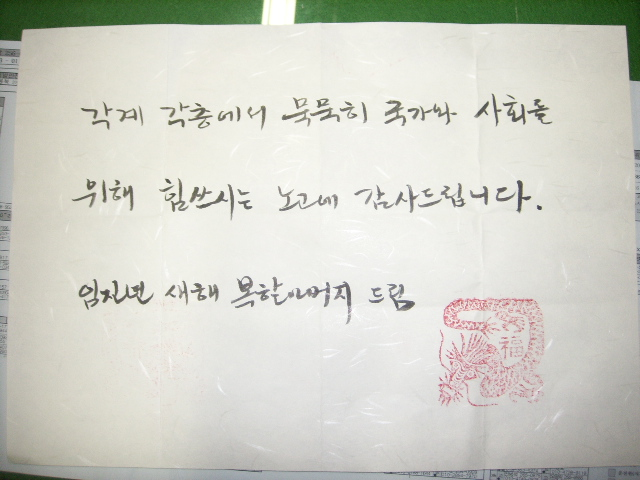 각계 각층에서 묵묵히 국가와 사회를
위해 힘쓰시는 노고에 감사드립니다.
임진년 새해 복할아버지 드림
福